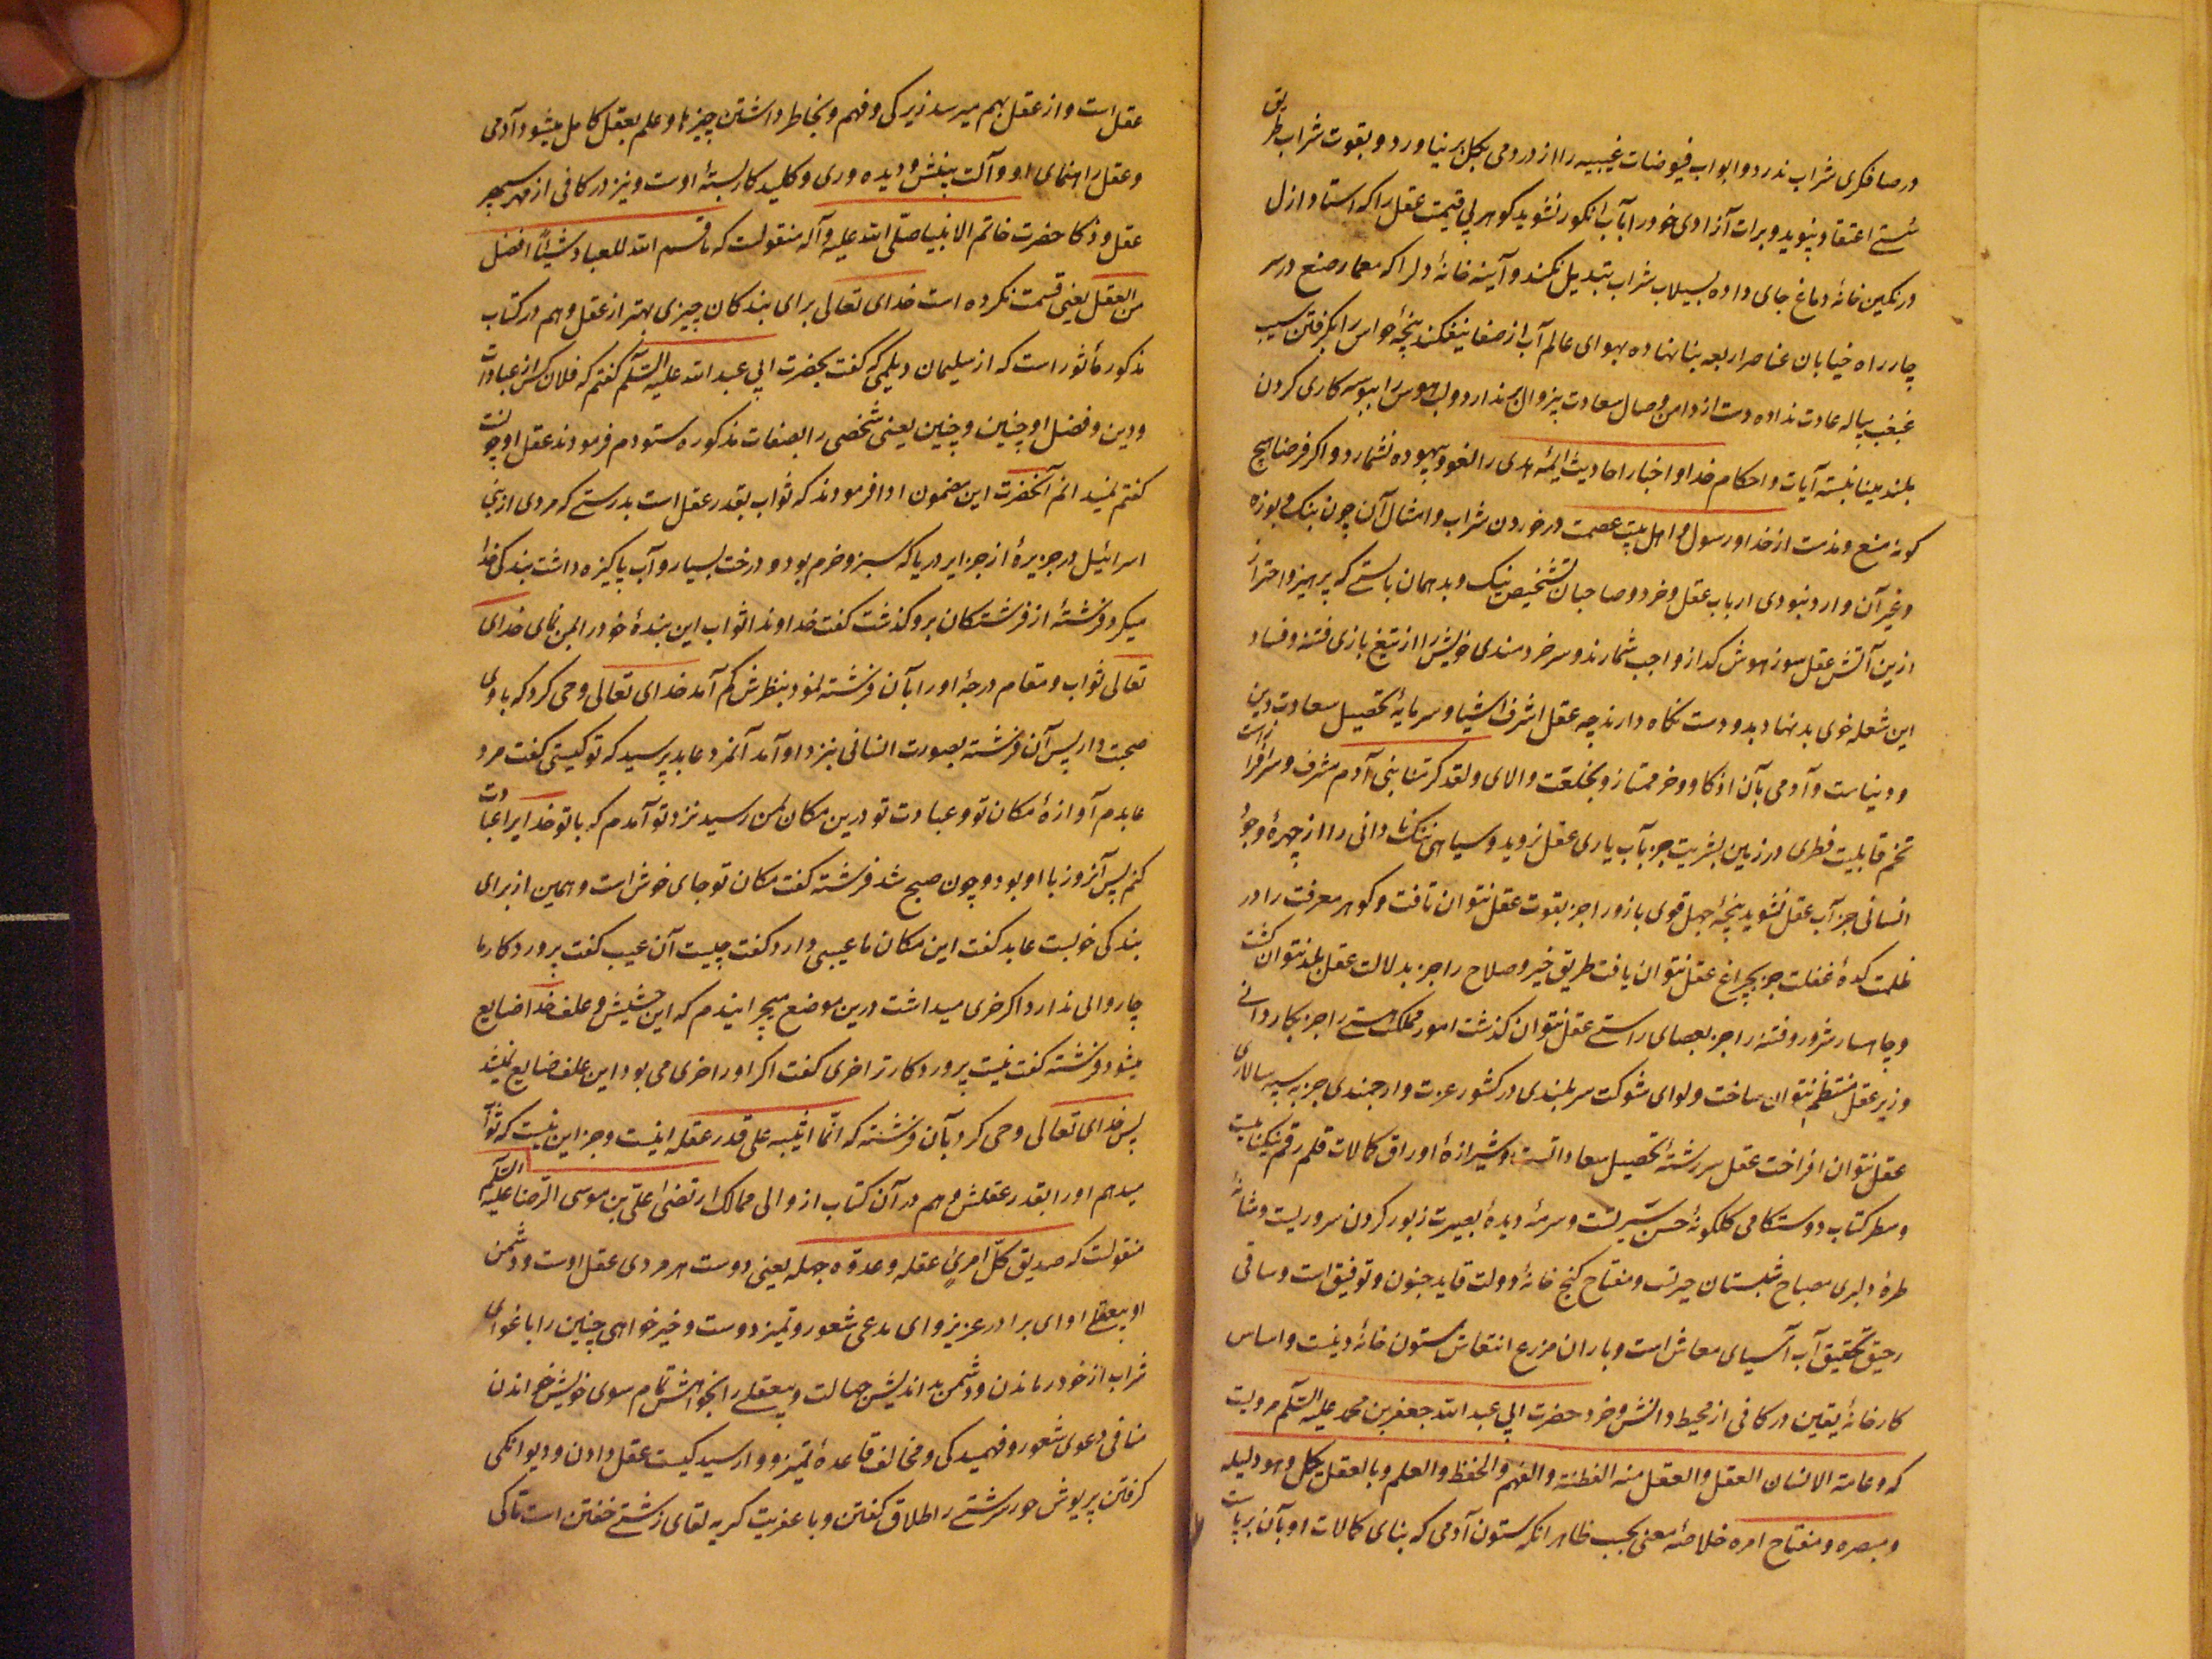 در صافکری شراب ندرد و ابواب فیوضات غیبیه را از در و می بکل برنیاورد و بقوت شراب طریق
سستی اعتقاد نپوید و برات آزادی خود را بآب انکور نشوید کوهر بی قیمت عقل را که استاد ازل
در نکین خانهٔ دماغ جای داده بسیلاب شراب تبدیل نکند و آینه خانهٔ دل را که معمار صنع در سر
چار راه خیابان عناصر اربعه بنا نهاده بهوای عالم آب از صفا نیفکند پنجهٔ حواس را بکرفتن سیب
غبغب پیاله عادت نداده دست از دامن وصال سعادت بیزوال برندارد و لب هوس را ببوسه کاری کردن
بلند مینا نبسته آیات و احکام خدا و اخبار احادیث ائمه هدی را لغو و بیهوده نشمارد و اکر فرضا هیچ
کونه منع و مذمت از خدا و رسول و اهل بیت عصمت در خوردن شراب و امثال آن چون بنک و بوزه
و غیر آن وارد نبودی ارباب عقل و خرد و صاحبان تشخیص نیک و بد همان بایستی که پرهیز و احتراز
ازین آتش عقل سوز هوش کداز واجب شمارند و سر خردمندی خویش را از تیغ بازی فتنه و فساد
این شعله خوی بد نهاد بدو دست نکاه دارند چه عقل اشرف اشیا و سرمایهٔ تحصیل سعادت دین
و دنیاست و آدمی بآن از کاو و خر ممتاز و بخلعت والای ولقد کرمنا بنی آدم مشرف و سرافراز است
تخم قابلیت فطری در زمین بشریت جز بآب یاری عقل نروید و سیاهی ننک نادانی را از چهرهٔ وجود
انسانی جز آب عقل نشوید پنجهٔ جهل قوی بازو را جز بقوت عقل نتوان تافت و کوهر معرفت را در
ظلمت کدهٔ غفلت جز بچراغ عقل نتوان یافت طریق خیر و صلاح را جز بدلالت عقل بلد نتوان کشت
و چاهسار شرور و فتنه را جز بعصای راستی عقل نتوان کذشت امور مملکت هستی را جز بکاردانی
وزیر عقل منتظم نتوان ساخت و لوای شوکت سربلندی در کشور عزت و ارجمندی جز به سپه سالاری
عقل نتوان افراخت عقل سررشتهٔ تحصیل سعاداتست و شیرازهٔ اوراق کمالات قلم رقم نیکنامیست
و سطر کتاب دوستکامی کلکونهٔ حسن سیرتست و سرمهٔ دیدهٔ بصیرت زیور کردن سروریست و شانهٔ
طرهٔ دلبری مصباح شبستان حیرتست و مفتاح کنج خانهٔ دولت قاید جنون و توفیق است و ساقی
رحیق تحقیق آب آسیای معاش است و باران مزرع انتعاش ستون خانهٔ دینست و اساس
کارخانهٔ یقین در کافی از محیط دانش و خرد حضرت ابی عبد الله جعفر بن محمد علیه السلم مرویست
که دعامة الانسان العقل والعقل منه الفطنة والفهم والحفظ والعلم وبالعقل یکمل وهو دلیله
ومبصره ومفتاح امره خلاصهٔ معنی بحسب ظاهر انکه ستون آدمی که بنای کمالات او بآن برپاست
عقل است و از عقل بهم میرسد زیرکی و فهم و بخاطر داشتن چیزها و علم بعقل کامل میشود آدمی
و عقل راهنمای او و آلت بینش و دیده وری و کلید کار بستهٔ اوست و نیز در کافی از مهر سپهر
عقل و ذکا حضرت خاتم الانبیا صلّی الله علیه و آله منقولست که ما قسم الله للعباد شیئاً افضل
من العقل یعنی قسمت نکرده است خدای تعالی برای بندکان چیزی بهتر از عقل و هم در کتاب
مذکور مأثور است که از سلیمان دیلمی که کفت بحضرت ابی عبد الله علیه السّلم کفتم که فلان کس از عبادات
و دین و فضل او چنین و چنین یعنی شخصی را بصفات مذکوره ستودم فرمودند عقل او چونست
کفتم نمیدانم آنحضرت این مضمون ادا فرمودند که ثواب بقدر عقل است بدرستی که مردی از بنی
اسرائیل در جزیرهٔ از جزایر دریا که سبز و خرم بود و درخت بسیار و آب پاکیزه داشت بندکی خدا
میکرد فرشتهٔ از فرشتکان برو کذشت کفت خداوندا ثواب این بندهٔ خود را بمن نمای خدای
تعالی ثواب و مقام درجهٔ او را بآن فرشته نمود بنظرش کم آمد خدای تعالی وحی کرد که با وی
صحبت دار پس آن فرشته بصورت انسانی بنزد او آمد آنمرد عابد پرسید که تو کیستی کفت مرد
عابدم آوازهٔ مکان تو و عبادت تو درین مکان بمن رسید نزد تو آمدم که با تو خدا را عبادت
کنم پس آنروز با او بود و چون صبح شد فرشته کفت مکان تو جای خوش است و همین از برای
بندکی خوبست عابد کفت این مکان ما عیبی دارد کفت چیست آن عیب کفت پروردکار ما
چاروائی ندارد اکر خری میداشت درین موضع میچرانیدم که این حشیش و علف خدا ضایع
میشود فرشته کفت نیست پروردکار ترا خری کفت اکر او را خری می بود این علف ضایع نمیشد
پس خدای تعالی وحی کرد بآن فرشته که انّما اثیبه علی قدر عقله اینست و جز این نیست که ثواب
میدهم او را بقدر عقلش و هم در آن کتاب از والی ممالک ارتضی علی بن موسی الرضا علیه السّلم
منقولست که صدیق کلّ امرئ عقله وعدوّه جهله یعنی دوست هر مردی عقل اوست و دشمن
او بیعقلی او ای برادر عزیز و ای مدعی شعور و تمیز دوست و خیرخواهی چنین را باغوای
شراب از خود رماندن و دشمن بد اندیش جهالت و بیعقلی را بخواهش تمام سوی خویش خواندن
منافی دعوی شعور و فهمیدکی و مخالف قاعدهٔ تمیز و وارسیدکیست عقل دادن و دیوانکی
کرفتن پریوش حور سرشتی را طلاق کفتن و با عفریت کریه لقای زشتی خفتن است تا کی